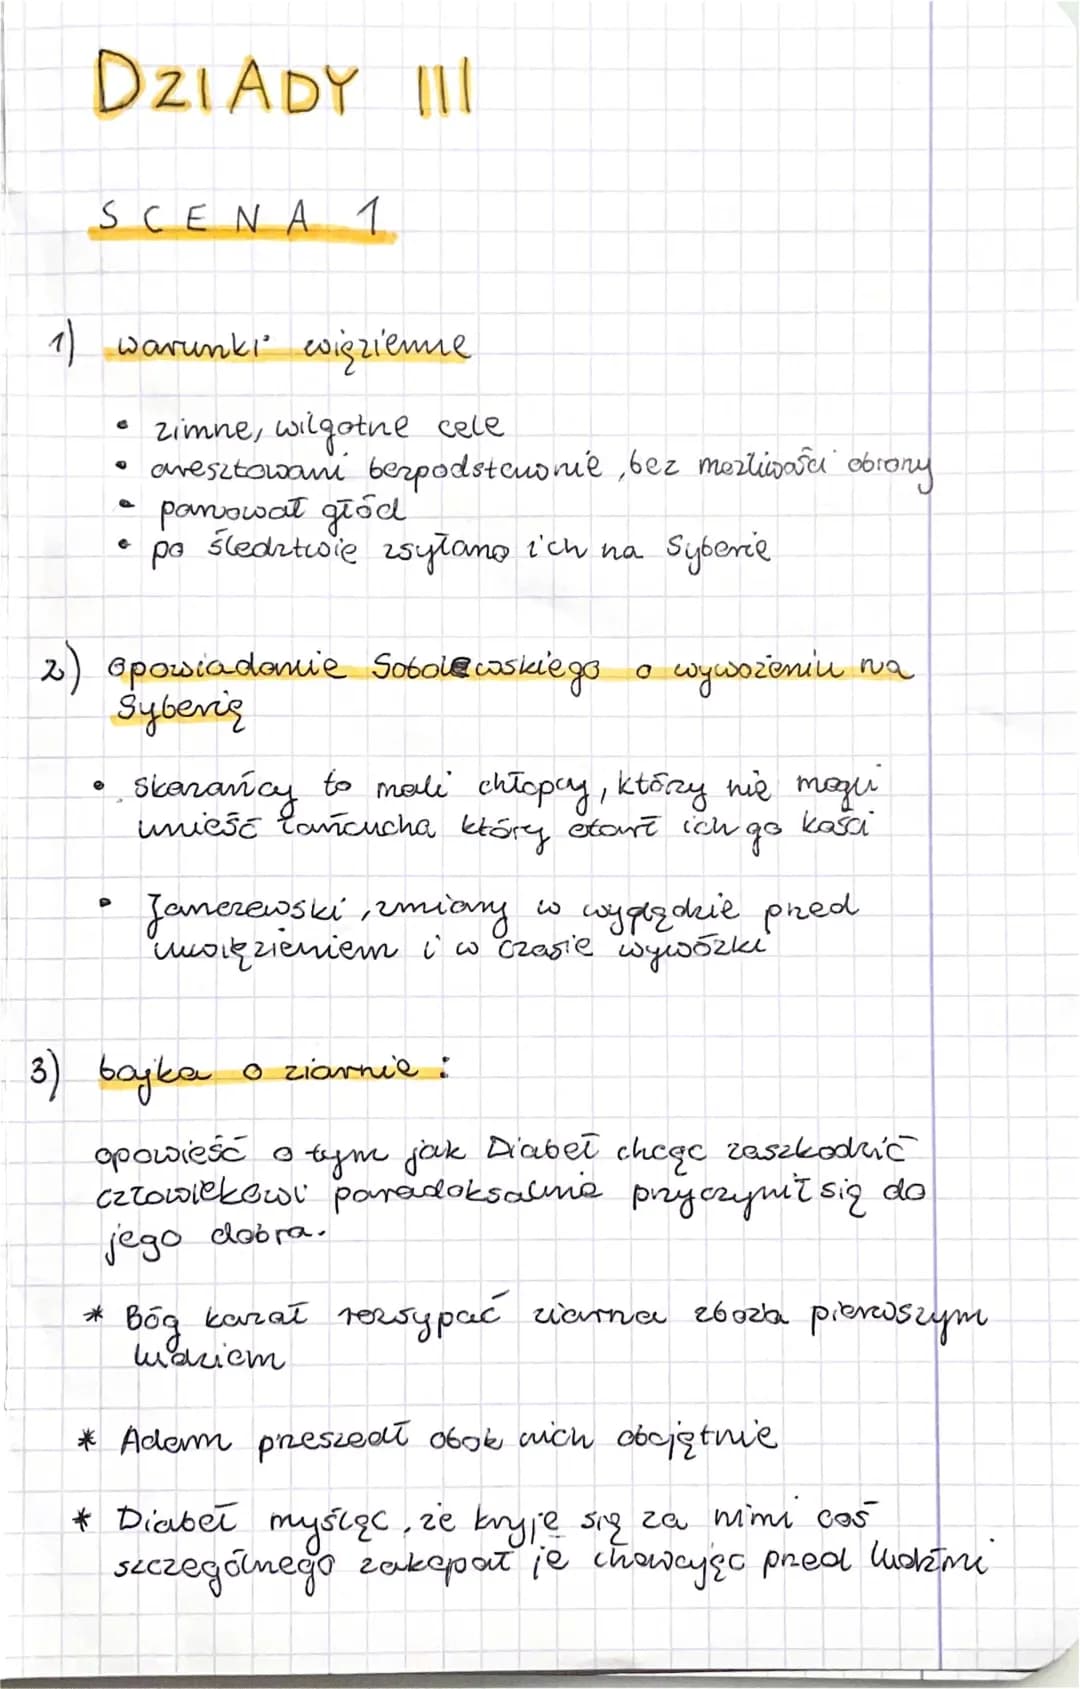 DZIADY III
SCENA 1
1) warunki więzienne
• zimne, wilgotne cele
• aresztowani bezpodstawnie, bez możliwości obrony
• panował głód
• po śledztwie zsyłano ich na Syberię
2) opowiadanie Sobolewskiego o wywożeniu na
Syberię
• skazańcy to mali chłopcy, którzy nie mogli
unieść łańcucha który otarł ich go kości
• Janczewski, zmiany w wyglądzie przed
uwięzieniem i w czasie wywózki
3) bajka o ziarnie:
opowieść o tym jak Diabeł chcąc zaszkodzić
człowiekowi paradoksalnie przyczynił się do
jego dobra.
* Bóg kazał rozsypać ziarna zboża pierwszym
ludziom
* Adam przeszedł obok nich obojętnie
* Diabeł myśląc, że kryje się za nimi coś
szczególnego zakopał je chowając przed ludźmi